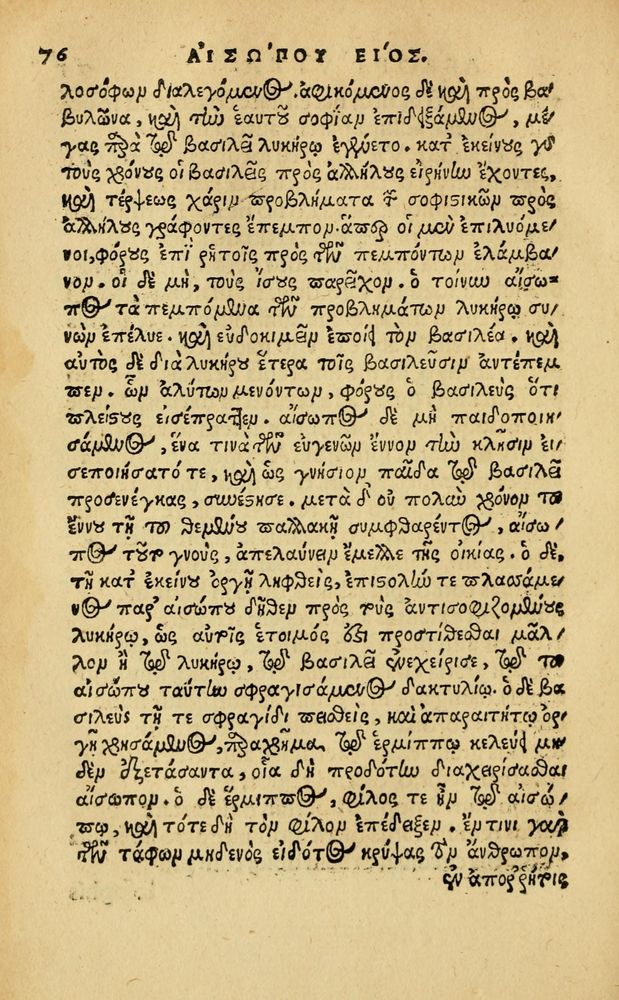 76 ΑΙΣΩΠΟΥ ΒΙΟΣ.
λοσόφων διαλεγόμενος. ἀφικόμενος δὲ καὶ πρὸς βα
βυλῶνα, καὶ τὴν ἑαυτοῦ σοφίαν ἐπιδειξάμενος, μέ-
γας παρὰ τῷ βασιλεῖ λυκήρῳ ἐγένετο. κατ ἐκείνους γὸ
τοὺς χρόνους οἱ βασιλεῖς πρὸς ἀλλήλους εἰρήνην ἔχοντες,
καὶ τέρψεως χάριν προβλήματα τῶν σοφιστικῶν πρὸς
ἀλλήλους γράφοντες ἔπεμπον. ἅπερ οἱ μὲν ἐπιλυόμε-
νοι, φόρους ἐπὶ ῥητοῖς πρὸς τῶν πεμπόντων ἐλάμβα-
νον. οἱ δὲ μὴ, τοὺς ἴσους παρεῖχον. ὁ τοίνυν αἴσω-
πος τὰ πεμπόμενα τῶν προβλημάτων λυκήρῳ συ-
νῶν ἐπέλυε. καὶ εὐδοκιμεῖν ἐποίει τὸν βασιλέα. καὶ
αὐτὸς δὲ διὰ λυκήρου ἕτερα τοῖς βασιλεῦσιν ἀντέπεμ
πεν. ὧν ἀλύτων μενόντων, φόρους ὁ βασιλεὺς ὅτι
πλείστους εἰσέπραττεν. αἴσωπος δὲ μὴ παιδοποιη-
σάμενος, ἕνα τινὰ τῶν εὐγενῶν ἔννον τὴν κλῆσιν εἰ-
σεποιήσατό τε, καὶ ὡς γνήσιον παῖδα τῷ βασιλεῖ
προσενέγκας, συνέστησε. μετὰ δ οὐ πολὺν χρόνον τοῦ
ἔννου τῇ τοῦ θεμένου παλλακῇ συμφθαρέντος, αἴσω-
πος τοῦτο γνοὺς, ἀπελαύνειν ἔμελλε τῆς οἰκίας. ὁ δὲ,
τῇ κατ ἐκείνου ὀργῇ ληφθεὶς, ἐπιστολήν τε πλασάμε-
νος παρ αἰσώπου δῆθεν πρὸς τοὺς ἀντισοφιζομένους
λυκήρῳ, ὡς αὐτοῖς ἕτοιμός ἐστι προστίθεσθαι μᾶλ-
λον ἢ τῷ λυκήρῳ, τῷ βασιλεῖ ἐνεχείρισε, τῷ τοῦ
αἰσώπου ταύτην σφραγισάμενος δακτυλίῳ. ὁ δὲ βα
σιλεὺς τῇ τε σφραγίδι πεισθεὶς, καὶ ἀπαραιτήτῳ ὀρ-
γῇ χρησάμενος, παραχρῆμα τῷ ἑρμίππῳ κελεύει μη-
δὲν ἐξετάσαντα, οἷα δὴ προδότην διαχειρίσασθαι
αἴσωπον. ὁ δὲ ἕρμιππος, φίλος τε ἦν τῷ αἰσώ-
πῳ, καὶ τότε δὴ τὸν φίλον ἐπέδειξεν. ἔν τινι γὰρ
τῶν τάφων μηδενὸς εἰδότος κρύψας τὸν ἄνθρωπον,
ἐν ἀποῤῥήτοις